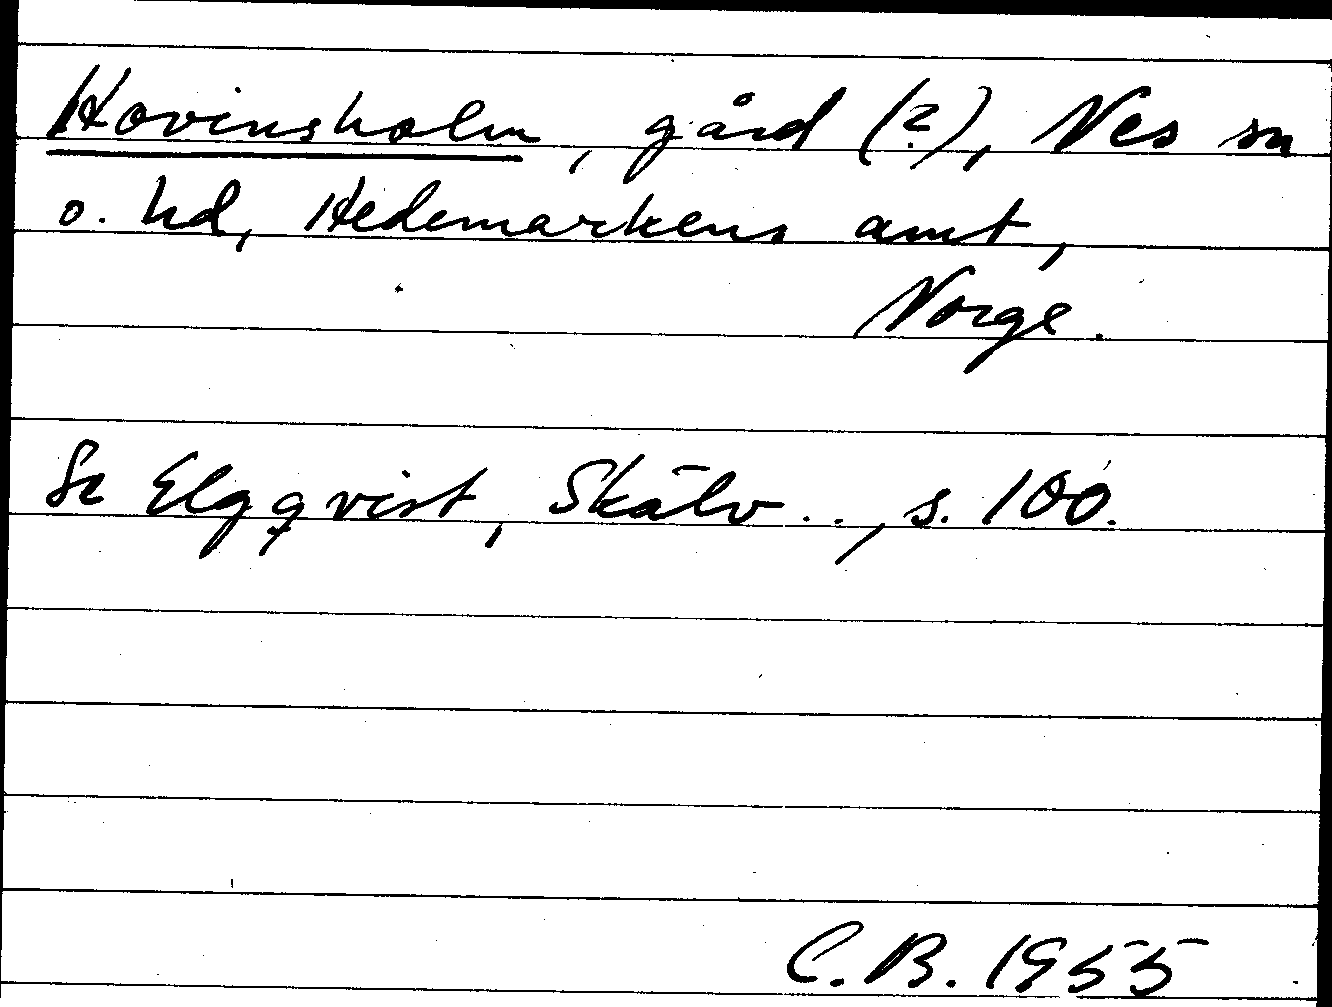 Hovinsholm, gård (?), Nes sn
o. hd, Hedemarkens amt,
Norge.
Se Elgqvist, Skälv.., s. 100.
C.B. 1955